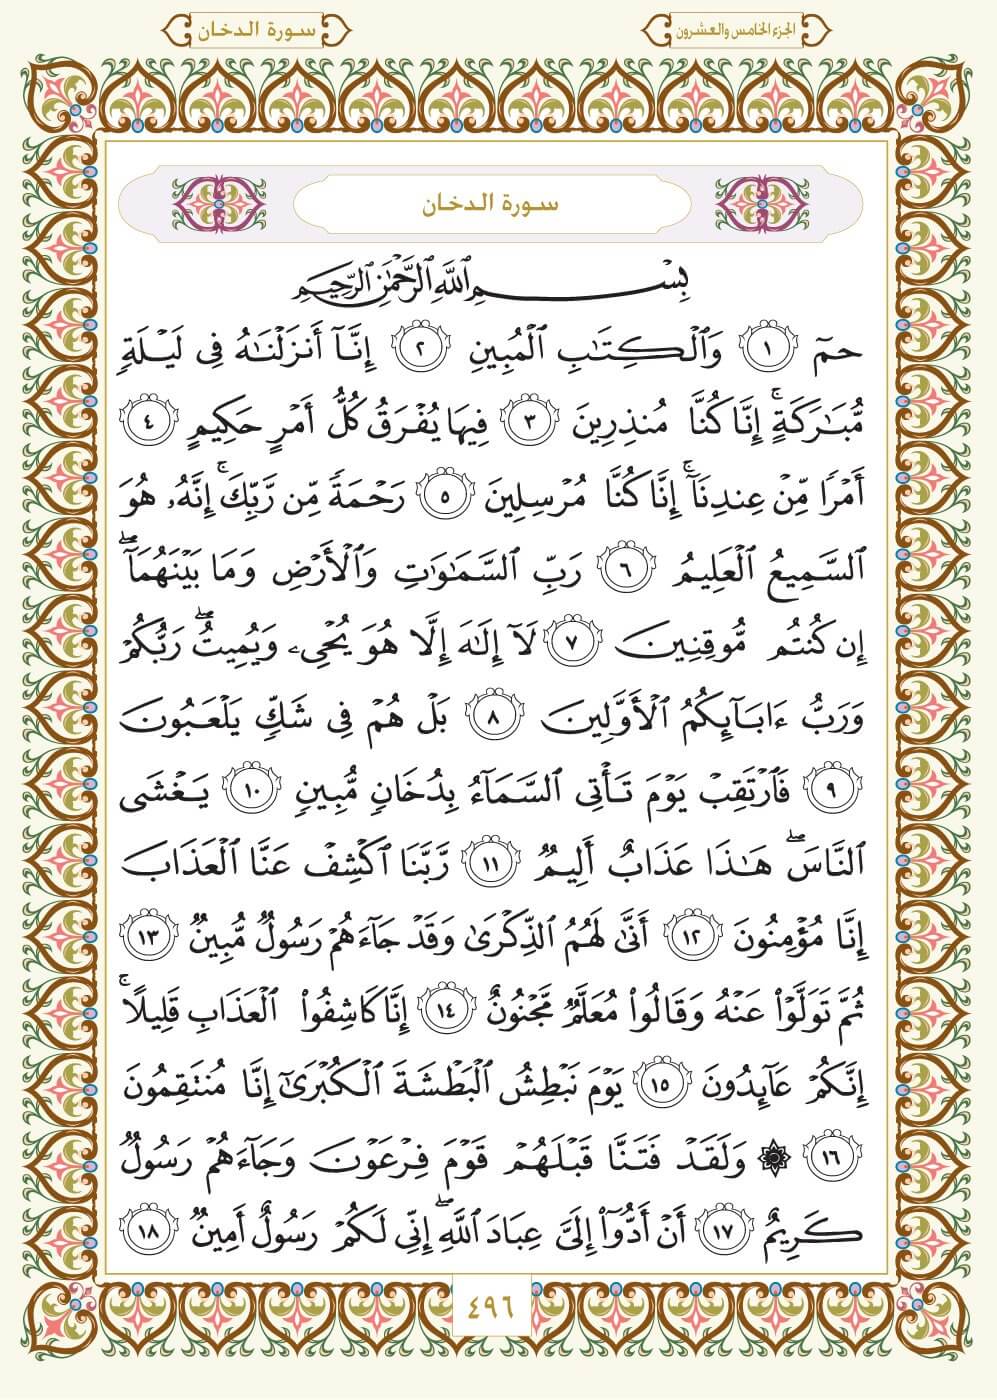 الجزء الخامس والعشرون
سورة الدخان
سورة الدخان
بِسْمِ ٱللَّهِ ٱلرَّحْمَٰنِ ٱلرَّحِيمِ
حمٓ ١ وَٱلْكِتَٰبِ ٱلْمُبِينِ ٢ إِنَّآ أَنزَلْنَٰهُ فِى لَيْلَةٍ
مُّبَٰرَكَةٍ ۚ إِنَّا كُنَّا مُنذِرِينَ ٣ فِيهَا يُفْرَقُ كُلُّ أَمْرٍ حَكِيمٍ ٤
أَمْرًا مِّنْ عِندِنَآ ۚ إِنَّا كُنَّا مُرْسِلِينَ ٥ رَحْمَةً مِّن رَّبِّكَ ۚ إِنَّهُۥ هُوَ
ٱلسَّمِيعُ ٱلْعَلِيمُ ٦ رَبِّ ٱلسَّمَٰوَٰتِ وَٱلْأَرْضِ وَمَا بَيْنَهُمَآ ۖ
إِن كُنتُم مُّوقِنِينَ ٧ لَآ إِلَٰهَ إِلَّا هُوَ يُحْىِۦ وَيُمِيتُ ۖ رَبُّكُمْ
وَرَبُّ ءَابَآئِكُمُ ٱلْأَوَّلِينَ ٨ بَلْ هُمْ فِى شَكٍّ يَلْعَبُونَ
٩ فَٱرْتَقِبْ يَوْمَ تَأْتِى ٱلسَّمَآءُ بِدُخَانٍ مُّبِينٍ ١٠ يَغْشَى
ٱلنَّاسَ ۖ هَٰذَا عَذَابٌ أَلِيمٌ ١١ رَّبَّنَا ٱكْشِفْ عَنَّا ٱلْعَذَابَ
إِنَّا مُؤْمِنُونَ ١٢ أَنَّىٰ لَهُمُ ٱلذِّكْرَىٰ وَقَدْ جَآءَهُمْ رَسُولٌ مُّبِينٌ ١٣
ثُمَّ تَوَلَّوْا۟ عَنْهُ وَقَالُوا۟ مُعَلَّمٌ مَّجْنُونٌ ١٤ إِنَّا كَاشِفُوا۟ ٱلْعَذَابِ قَلِيلًا ۚ
إِنَّكُمْ عَآئِدُونَ ١٥ يَوْمَ نَبْطِشُ ٱلْبَطْشَةَ ٱلْكُبْرَىٰٓ إِنَّا مُنتَقِمُونَ
١٦ ۞ وَلَقَدْ فَتَنَّا قَبْلَهُمْ قَوْمَ فِرْعَوْنَ وَجَآءَهُمْ رَسُولٌ
كَرِيمٌ ١٧ أَنْ أَدُّوٓا۟ إِلَىَّ عِبَادَ ٱللَّهِ ۖ إِنِّى لَكُمْ رَسُولٌ أَمِينٌ ١٨
٤٩٦